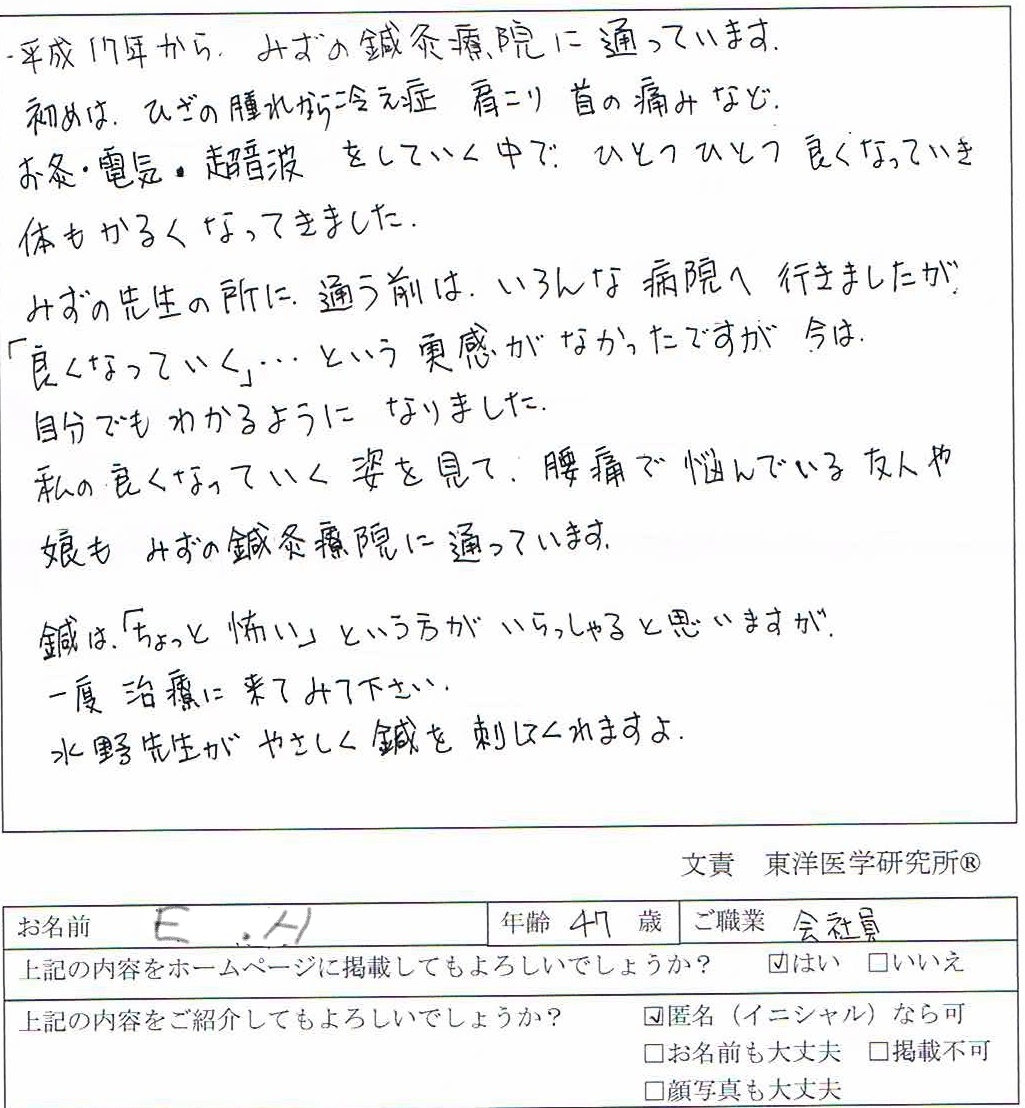 ・平成17年から、みずの鍼灸療院に通っています。
初めは、ひざの腫れから冷え症 肩こり 首の痛みなど、
お灸・電気・超音波 をしていく中で、ひとつひとつ 良くなっていき
体もかるくなってきました。
みずの先生の所に、通う前は、いろんな病院へ 行きましたが、
「良くなっていく」…という実感がなかったですが 今は、
自分でもわかるように なりました。
私の良くなっていく姿を見て、腰痛で悩んでいる友人や
娘も みずの鍼灸療院に通っています。
鍼は、「ちょっと怖い」という方がいらっしゃると思いますが、
一度 治療に来てみて下さい。
水野先生が やさしく鍼を刺してくれますよ。
文責 東洋医学研究所®
お名前 E.H 年齢 47 歳 ご職業 会社員
上記の内容をホームページに掲載してもよろしいでしょうか？ ☑はい □いいえ
上記の内容をご紹介してもよろしいでしょうか？ ☑匿名（イニシャル）なら可
□お名前も大丈夫 □掲載不可
□顔写真も大丈夫